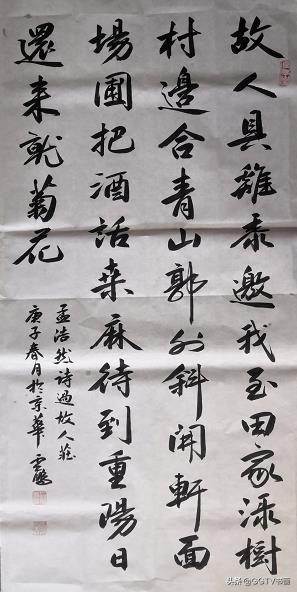 故人具雞黍邀我至田家綠樹
村邊合青山郭外斜開軒面
場圃把酒話桑麻待到重陽日
還来就菊花
孟浩然诗過故人莊
庚子春月於京華
头条 @GGTV书画